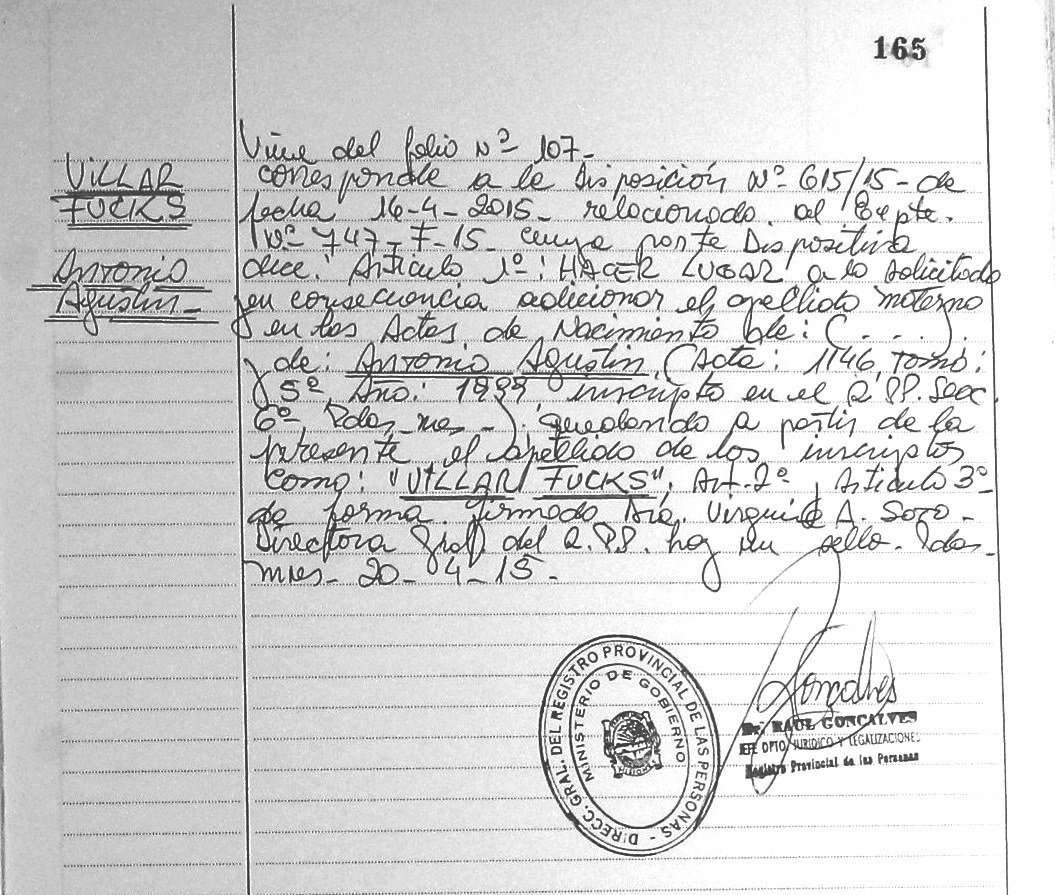 165
VILLAR
FUCKS
Antonio
Agustin_
Viene del folio Nº 107_
corresponde a la Disposición Nº 615/15_ de
fecha 16-4-2015_ relacionado al Expte.
Nº 747_F_15_ cuya parte Dispositiva
dice: Artículo 1º: HACER LUGAR a lo solicitado
en consecuencia adicionar el apellido materno
en las Actas de Nacimiento de: (. . . . .)
y de: Antonio Agustin (Acta: 1146, Tomo:
5º Año: 1999 inscripto en el R.PP. Secc.
6º Pdas_mes_) quedando a partir de la
presente el apellido de los inscriptos
como: "VILLAR FUCKS". Art. 2º, Artículo 3º
de forma. firmado Virginia A. Soto_
Directora Gral del R.PP. hay un sello. Pdas_
mnes_ 20_4_15_
Goncalves
Dr. RAUL GONCALVES
JEFE DPTO. JURIDICO Y LEGALIZACIONES
Registro Provincial de las Personas
DIRECC. GRAL. DEL REGISTRO PROVINCIAL DE LAS PERSONAS -
MINISTERIO DE GOBIERNO
MISIONES